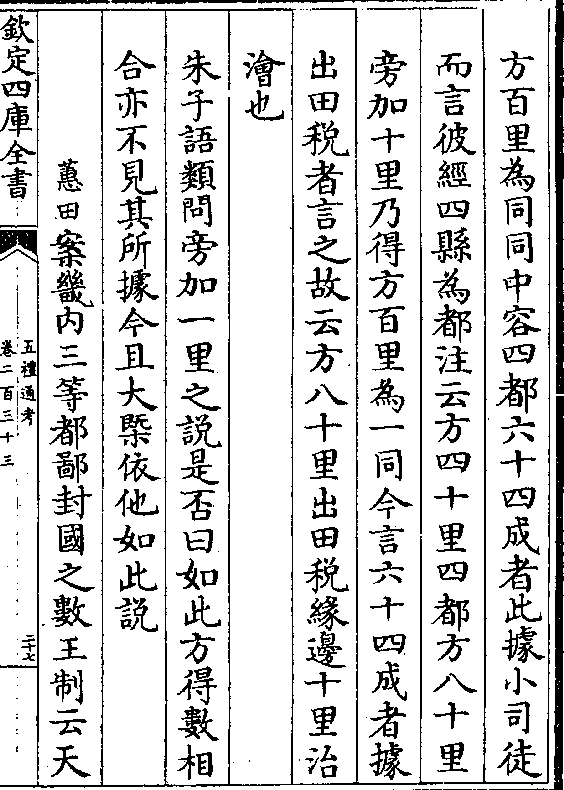 方百里為同同中容四都六十四成者此據小司徒
而言彼經四縣為都注云方四十里四都方八十里
旁加十里乃得方百里為一同今言六十四成者據
出田税者言之故云方八十里出田税緣邊十里治
澮也
朱子語類問旁加一里之說是否曰如此方得數相
合亦不見其所據今且大槩依他如此說
蕙田案畿内三等都鄙封國之數王制云天
欽定四庫全書
五禮通考
卷二百三十三
二十七